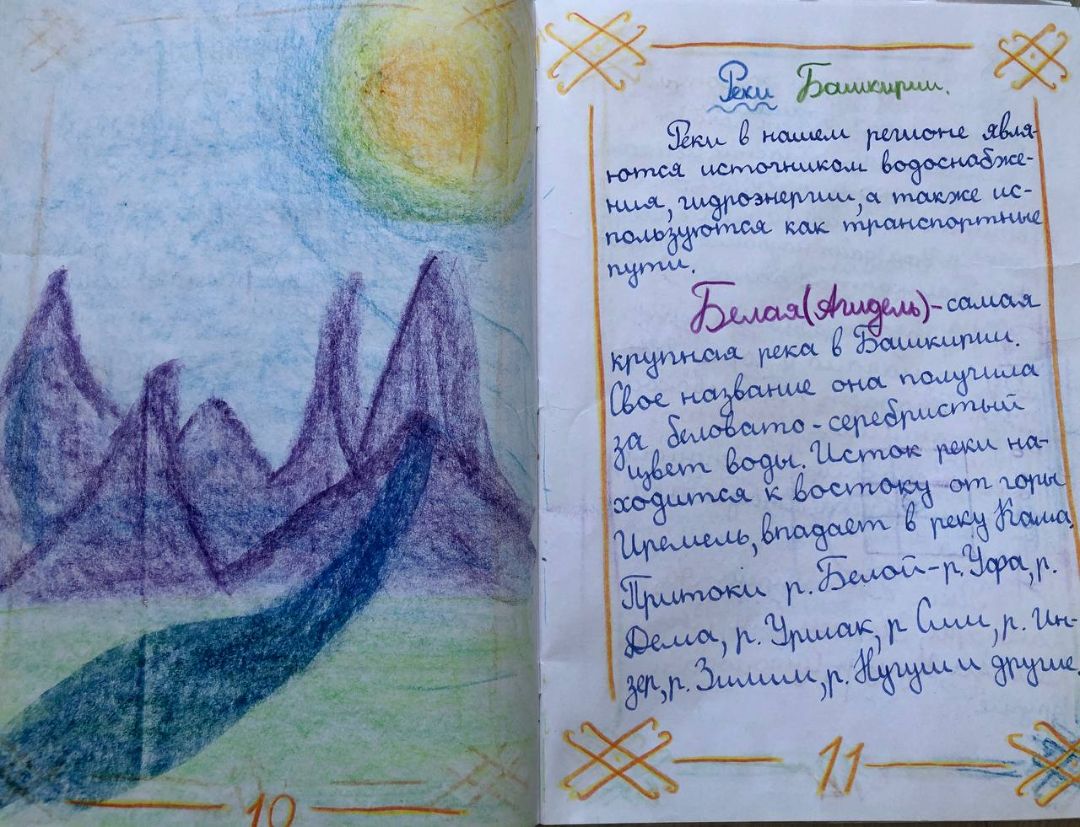 10
Реки Башкирии.
Реки в нашем регионе явля-
ются источником водоснабже-
ния, гидроэнергии, а также ис-
пользуются как транспортные
пути.
Белая (Агидель) - самая
крупная река в Башкирии.
Свое название она получила
за беловато-серебристый
цвет воды. Исток реки на-
ходится к востоку от горы
Иремель, впадает в реку Кама.
Притоки р. Белой - р. Уфа, р.
Дема, р. Уршак, р Сим, р. Ин-
зер, р. Зилим, р. Нугуш и другие.
11